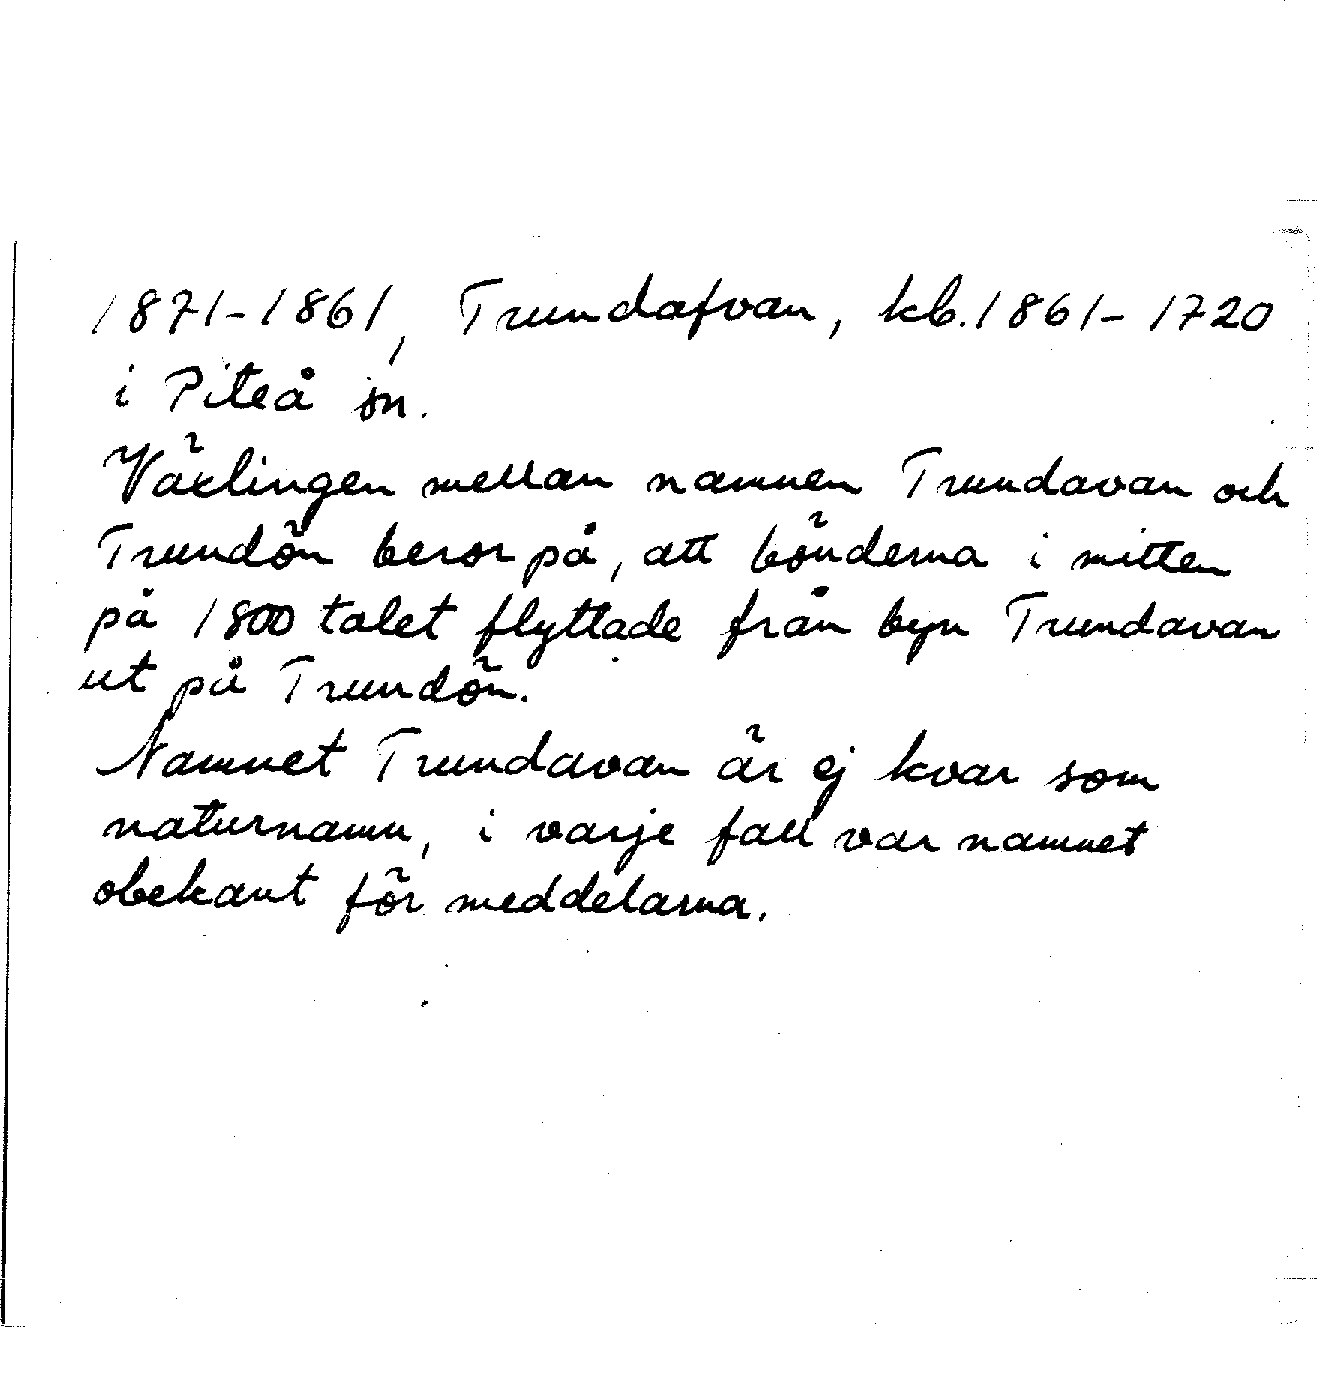 1871-1861, Trundafvan, kb. 1861-1720
i Piteå sn.
Växlingen mellan namnen Trundavan och
Trundön beror på, att bönderna i mitten
på 1800 talet flyttade från byn Trundavan
ut på Trundön.
Namnet Trundavan är ej kvar som
naturnamn, i varje fall var namnet
obekant för meddelarna.